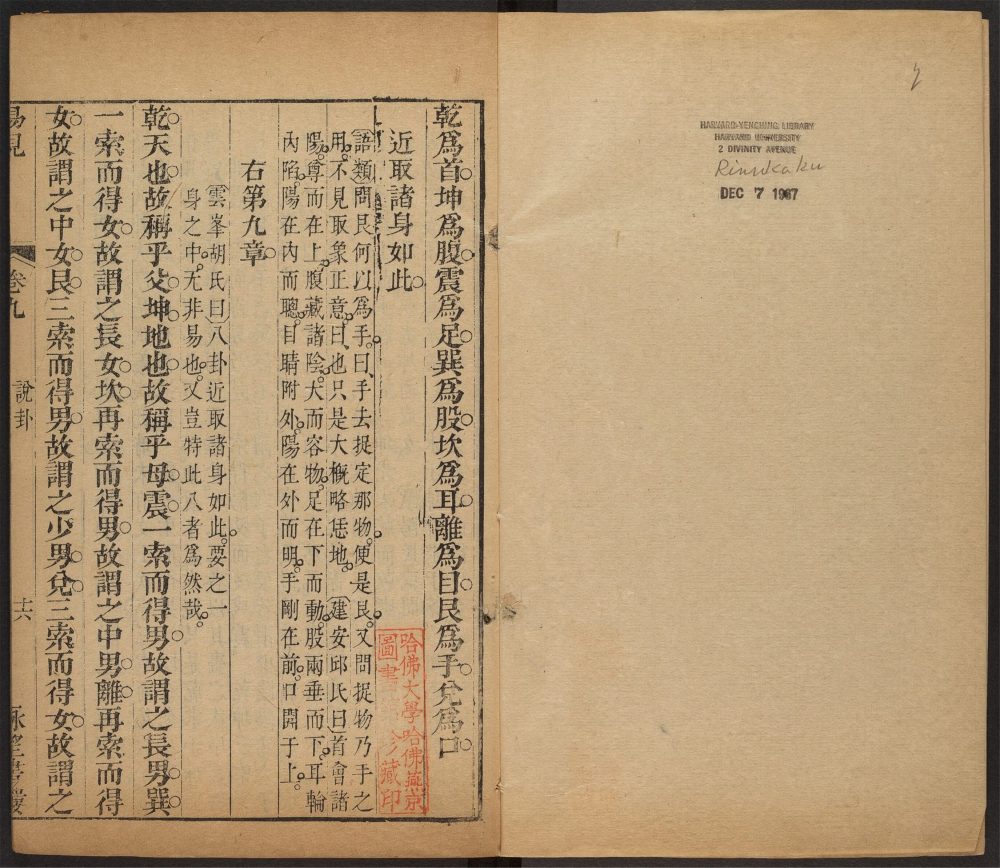 HARVARD-YENCHING LIBRARY
HARVARD UNIVERSITY
2 DIVINITY AVENUE
Rinrokaku
DEC 7 1967
2
乾為首坤為腹震為足巽為股坎為耳離為目艮為手兌為口
近取諸身如此
語類問艮何以為手曰手去捉定那物便是艮又問捉物乃手之
用不見取象正意曰也只是大概略恁地 建安邱氏曰首會諸
陽尊而在上腹藏諸陰大而容物足在下而動股兩垂而下耳輪
內陷陽在內而聰目睛附外陽在外而明手剛在前口開于上
右第九章
雲峯胡氏曰八卦近取諸身如此要之一
身之中无非易也又豈特此八者為然哉
乾天也故稱乎父坤地也故稱乎母震一索而得男故謂之長男巽
一索而得女故謂之長女坎再索而得男故謂之中男離再索而得
女故謂之中女艮三索而得男故謂之少男兌三索而得女故謂之
易見 卷九 說卦 十六
哈佛大學哈佛燕京
圖書 珍藏印